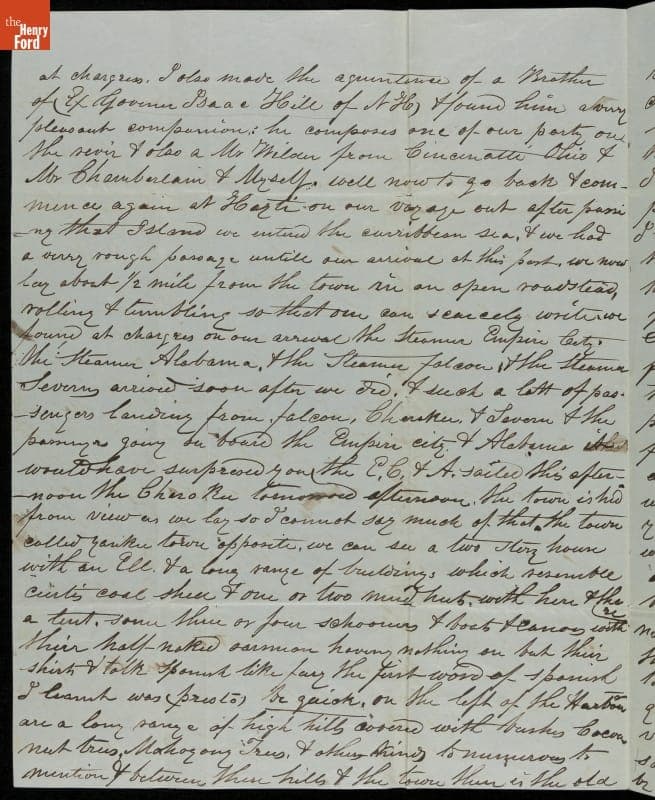 the
Henry
Ford
at chargress. I also made the aquentence of a Brother
of (Ex Govener Isaac Hill of N H) & found him a very
pleasant companion; he composes one of our party on
the revir & also a Mr Wilder from Cincinatte Ohio &
Mr Chamberlain & Myself. well now to go back & com-
mence again at Hayti on our voyage out after passi
-ng that Island we enterd the carribbean sea, & we had
a verry rough passage untill our arrival at this port. we now
lay about 1/2 mile from the town in an open roadstead,
rolling & tumbling so that one can scarcely write. we
found at chargres on our arrival the Steamer Empire City,
the Steamer Alabama, & the Steamer falcon, & the Steamer
Severn arrived soon after we did, & such a lott of pas-
sengers landing from falcon, Cherokee, & Severn & the
going on board the Empire city & Alabama
would have surpresed you the E.C. & A. sailed this after-
-noon the Cherokee tomorrow afternoon. the town is hid
from view as we lay so I cannot say much of that, the town
called yankee town opposite, we can see a two story house
with an Ell & a long range of buildings which resemble
coal shed & one or two mud huts, with here & there
a tent. some three or four schooners & boats & canoes with
their half-naked oarsmen having nothing on but their
shirts & talk Spanish like fury the first word of Spanish
I learnt was (presto) be quick. on the left of the Harbour
are a long range of high hills covered with bushes Cocoa
nut trees, Mahogony Trees, & other kinds to numerous to
mention & between these hills & the town there is the old